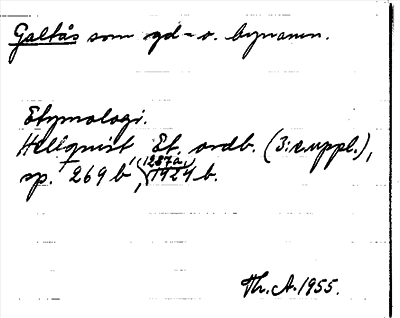 Galtås som gd- o. bynamn.
Etymologi.
Hellquist Et. ordb. (3:e uppl.),
sp. 269 b (1287a), 1924 b.
Th. A. 1955.